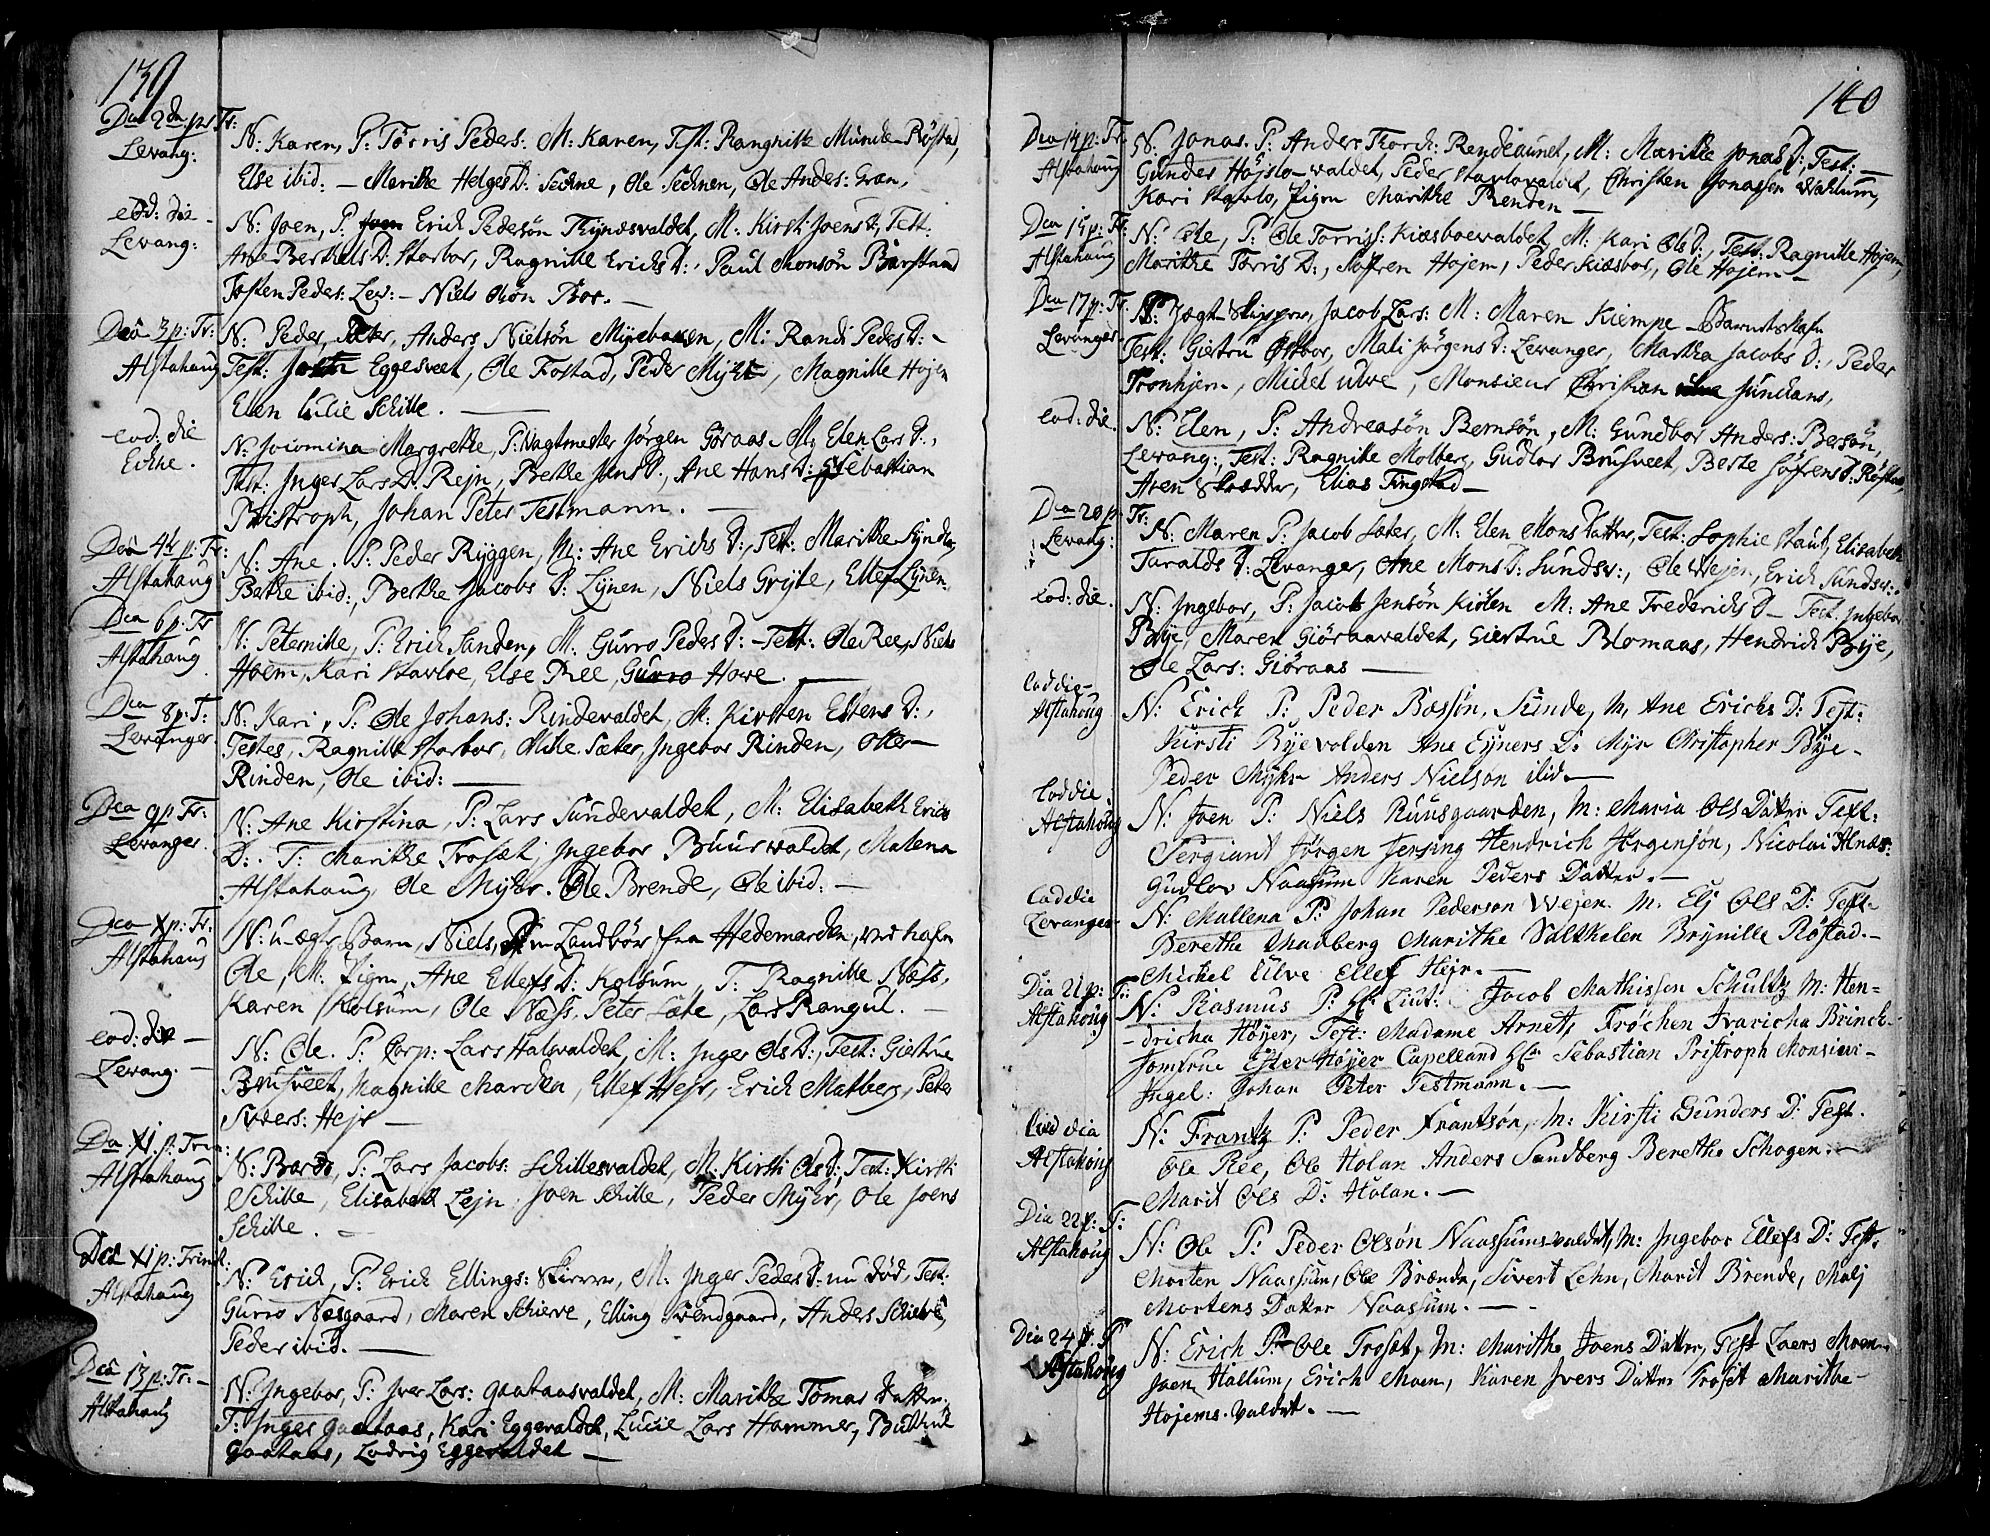 139
Dca 2da p: Tr:
Levang:
N: Karen, P: Tørris Peders: M: Karen, Test: Rangnille Munde-Røstad,
Else ibid: — Marithe Helges D: , Ole , Ole Anders: Gran,
eod: die
Levang:
N: Joen, P: Erich Pedersön Thynæsvaldet, M: Kirsti Joens D, Test:
Ane Berthels D: Storbor, Ragnille Erichs D:, Paul Monsön Barstaad
Tosten Peders: Lev: — Niels Boe. —
Dca 3 p: Tr:
Alstahaug
N: Peder, Pater, Anders Nielsön , M: Randi Peders D: —
Test: Eggesveet, Ole Fostad, Peder Myhr, Magnille Hojem
Elen Lucie Schille. —
eod: die
Echne.
N: Margrethe, P: Wagtmester Jörgen Göraas M: Elen Lars D:,
Test: Inger Lars D: Rejn, Berthe Jens D:, Ane Hans D: Sebastian
Pristroph, Johan Peter Testmann. —
Dca 4t p: Tr:
Alstahaug
N: Ane. P: Peder Ryggen, M: Ane Erichs D:, Test: Marithe
Berthe ibid:, Berthe Jacobs D: Lynen, Niels Gryte, Ellef Lynen.
Dca 6 p: Tr
Alstahaug
N: Petternille, P: Erich Sanden, M: Gurro Peders D: — Test: Ole Ree, Niels
Hoem, Kari Stavloe, Else Ree, Gurro Howe. —
Dca 8 p: T:
Levanger
N: Kari, P: Ole Johans: Rindevaldet, M: Kirsten Estens D:,
Testes, Ragnille Storbor, Mille Sæter, Ingebor Rinden, Otter
Rinden, Ole ibid: —
Dca 9 p: Tr:
Levanger.
N: Ane Kirstina, P: Lars Sundevaldet, M: Elisabeth Erics
D:. T: Marithe Trosæt, Ingebor Buurvaldet, Malena
Alstahaug, Ole Myhr. Ole Brende, Ole ibid: —
Dca X p: Tr.
Alstahaug
N: u-ægte Barn, Niels, P: en Landbör fra Hedemarcken, ved nafn
Ole, M. Pigen, Ane Ellefs D: Kolsum, T: Ragnille Næss,
Karen Kolsum, Ole Næss, Peter Sæte, Lars Rangul. —
eod: die —
Levang. —
N: Ole. P: Corp: Lars Halvaldet, M: Inger Ols D:, Test: Giertrue
Brusveet, Magnille Marcken, Ellef Hejr, Erich Molberg, Peter
Sivers: Hejr —
Da XI p: Trin:
Alstahaug
N: Bardo, P: Lars Jacobs: Schillesvaldet, M: Kirsti Ols D:, Test: Kirsti
Schille, Elisabeth Lejn. Joen Schille, Peder Myhr, Ole Joens
Schille. —
Dca XI p: Trinit:
Alstahaug
N: Erich, P: Erich Ellings: , M: Inger Peders D: nu død, Test:
Gurro Næsgaard, Maren Schierve, Elling Svendgaard, Anders Schierve,
Peder ibid. —
Dca 13 p: Tr: —
Alstahaug
N: Ingebor, P: Iver Lars: Gaataasvaldet, M: Marithe Tomas Datter.
T: Inger Gaataas, Kari Eggevaldet, Lucie Lars Hammer,
Gaataas, Ludvig Eggevaldet —
140
Dca 14 p: Tr.
Alstahaug
N: Jonas. P: Anders Thorch: Rendeaunet, M: Marithe Jonas D:, Test: —
Gunder Höjslo-waldet, Peder Stavlovaldet, Christen Jonassen Wohlum,
Kari Stavlo, Pigen Marithe Renden —
Dca 15 p: Tr:
Alstahaug
N: Ole, P: Ole Torriss: Kiæsboevaldet, M: Kari Ols D:, Test: Ragnille Hojem,
Marithe Tørris D:, Hojem, Peder Kiæsboe, Ole Hojem —
Dca 17 p: Tr.
Levanger
P: Jægt-Skipper, Jacob Lars: M: Maren Kiempe —
Test: Giertru Østbor, Mali Jörgens D: Levanger, Martha Jacobs D:, Peder
Tronhjem, Michel Ulve, Monsieur Christian .
eod: die.
N: Elen, P: Andreasön Bernsön, M: Gundbor Anders: Bersön,
Levang:, Test: Ragnille Molberg, Gudlov Brusveet, Berte Söfrens D: Røstad,
Aren Skrædder, Elias Tingstad —
Dca 20 p: Tr:
Levang:
N: Maren P: Jacob Sæter, M: Elen Mons Datter, Test: Sophie Staut, Elisabeth
Taralds D: Levanger, Ane Mons D: Sundsv:, Ole Wejen, Erich Sundsv:.
eod: die.
N: Ingebor, P: Jacob Jensön Kiölen M: Ane Frederichs D — Test: Ingebor
Bye, Maren Giöraasvaldet, Giertrue Blomaas, Hendrich Bye,
Ole Lars: Giöraas —
eod die —
Alstahoug
N: Erich P: Peder Bæssön, Sunde, M, Ane Erichs D: Test:
Kirsti Byevolden Ane Ejners D: Myr Christopher Bye —
Peder Myhr Anders Nielsön ibid. —
eod die
Alstahoug
N: Joen P: Niels Ruusgaarden, M: Maria Ols Datter Test:
Sergiant Jörgen Jersing Hendrich Jörgensön, Nicolai Alnæs:
Gudlov Naassum Karen Peders Datter. —
eod die
Levanger
N: Mallena P: Johan Pederson Wejen. M. Elj Ols D: Test.
Berethe Madberg Marithe Saltkelen Brynille Röstad. —
Michel Ulve Ellef Hejr. —
Dia 21 p: T:
Alstahoug
N: Rasmus P: Hr Liut: Jacob Mathissen Schultz M: Hen=
dricha Höyer, Test: Madame Arnet, Fröchen Fraricha Brinch
Jomfrue Ester Höjer Capelland Hr. Sebastian Pristroph Monsieu=
Ingel: Johan Peter Testmann. —
Eod dia
Alstahoug
N: Frantz P: Peder Frantsön, M: Kirsti Gunders D: Test.
Ole Ree, Ole Holan Anders Sundberg Berethe Schogen. —
Marit Ols D: Holan. —
Dia 22 p: T:
Alstahoug
N: Ole P: Peder Olsön Naassumsvaldet, M: Ingebor Ellefs D: Test.
Morten Naassum, Ole Brænde, Sivert Lehn, Marit Brende, Malj
Mortens Datter Naassum. —
Dia 24 p: T
Alstahoug
N: Erich P: Ole Trosæt, M: Marithe Joens Datter, Test Laers Moen
Joen Hallum, Erich Moen, Karen Ivers Datter Troset Marithe
Hojems-valdet. —